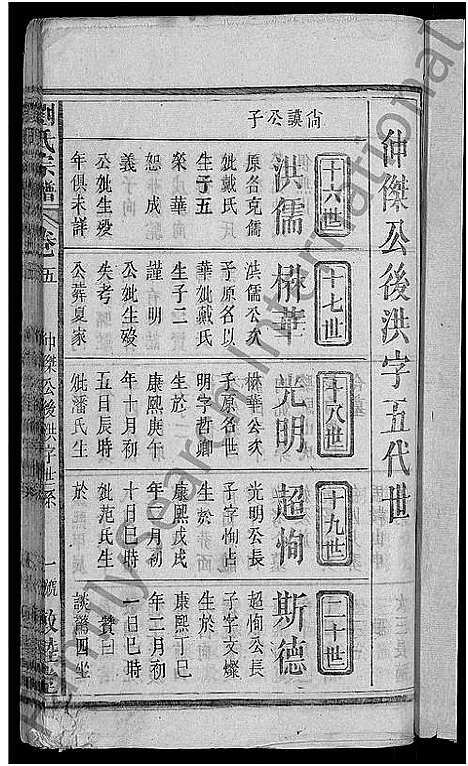 仲傑公後洪字五代世
尙謨公子
十六世
洪儒
原名克儒
妣戴氏
生子五
榮華
恕 成
義子向
公妣生歿
年俱未詳
十七世
楙華
洪儒公次
子原名以
華妣戴氏
生子二
謹 明
公妣生殁
失考
公葬夏家
十八世
光明
楙華公次
子原名世
明字哲卿
生於
康熙庚午
年十月初
五日辰時
妣潘氏生
十九世
超恂
光明公長
子字恂占
生於
康熙戊戌
年二月初
十日巳時
妣范氏生
於
二十世
斯德
超恂公長
子字文燦
生於
康熙丁巳
年二月初
一日巳時
贊曰
談驚四坐
劉氏宗譜
卷五
仲傑公後洪字世系
一號
敦睦堂
FamilySearch International